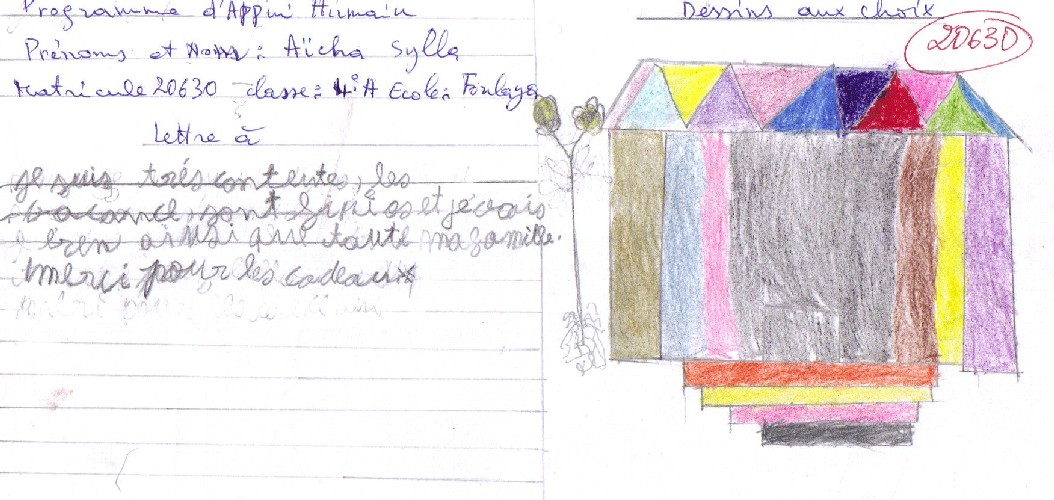 Programme d'Appui Humain
Prénoms et Noms: Aïcha Sylla
Matricule 20630 classe: 4ºA Ecole: Foulaya
Lettre à
je suis trés contentes, les
vacance, sont finios et je vais
bien ainsi que toute ma famille.
merci pour les cadeaux
merci pour les
Dessins aux choix
20630